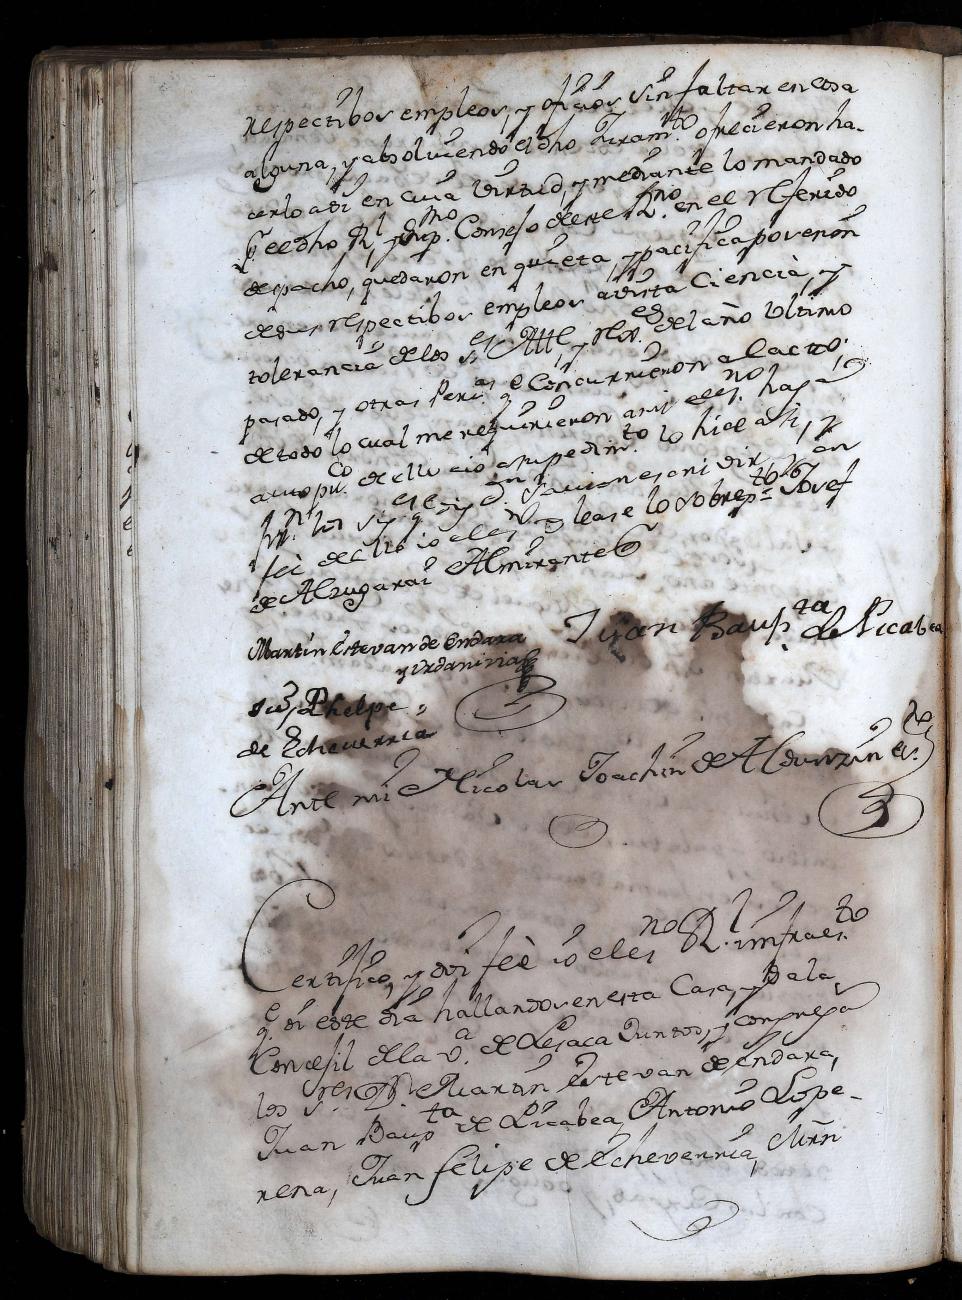 respectibos empleos, y oficios sin faltar en cosa
alguna, y absolviendo el dho Juramto ofrecieron ha-
cerlo asi en cuia virtud, y mediante lo mandado
pr el dho Rl y Supmo Consejo de este Rno en el referido
despacho, quedaron en quieta, y pacifica posesion
de sus respectibos empleos a vista Ciencia, y
tolerancia de los ses Alle y Res del año ultimo
pasado, y otras Perss qe Concurrieron al acto.
de todo lo cual me requirieron a mi el esno haga
auto puco de ello e io a su pedimto lo hice asi, y
firn los ses qe y en
fee de ello io el esno lease lo sobrepto Josef
de Alzugarai Almirante
Martin Estevan de Endara
y Urdaniria
Juan Baupta de Picabea
Juº Phelpe
de Echeverria
Ante mi Nicolas Joachin de Aldunzin esno
Certifico, y doi feè io el esno Rl infraesto
qe oi este dia hallandose en esta Casa, y Sala
Concejil de la va de Lesaca Juntos, y congregas
los sres Dn Martin Estevan de Endara,
Juan Baupta de Picabea, Antonio Lope-
rena, Juan felipe de Echeverria, Mrn